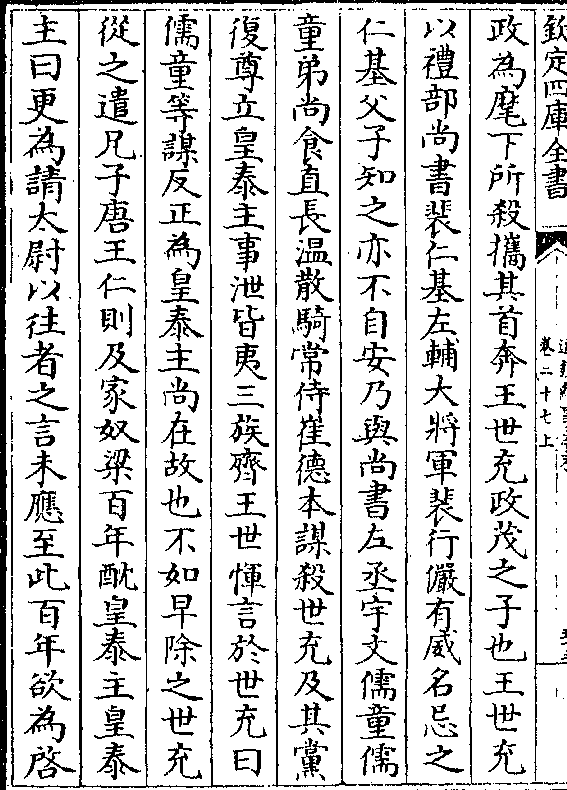 欽定四庫全書
卷二十七上
政為麾下所殺攜其首奔王世充政茂之子也王世充
以禮部尚書裴仁基左輔大將軍裴行儼有威名忌之
仁基父子知之亦不自安乃與尚書左丞宇文儒童儒
童弟尚食直長温散騎常侍崔德本謀殺世充及其黨
復尊立皇泰主事泄皆夷三族齊王世惲言於世充曰
儒童等謀反正為皇泰主尚在故也不如早除之世充
從之遣兄子唐王仁則及家奴梁百年酖皇泰主皇泰
主曰更為請太尉以往者之言未應至此百年欲為啓